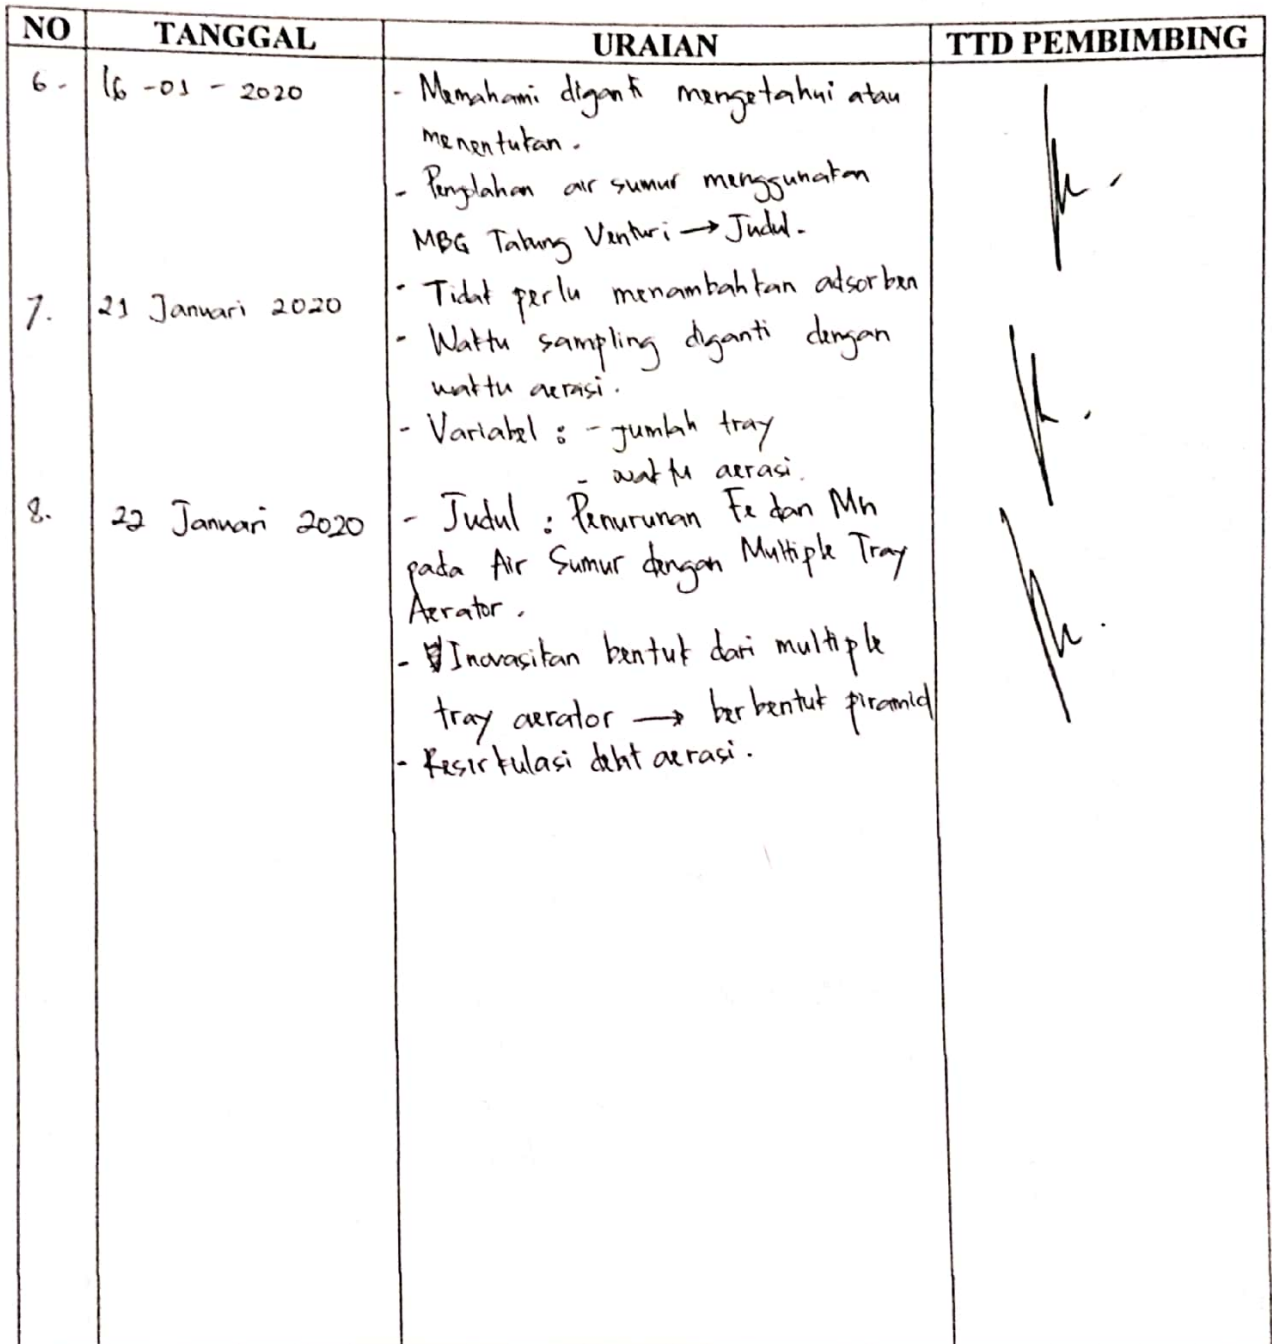 NO TANGGAL URAIAN TTD PEMBIMBING
6. 16 - 01 - 2020 - Memahami diganti mengetahui atau
menentukan.
- Pengolahan air sumur menggunakan
MBG Tabung Venturi → Judul.
- Tidak perlu menambahkan adsorben
7. 21 Januari 2020
- Waktu sampling diganti dengan
waktu aerasi.
- Variabel : - jumlah tray
- waktu aerasi.
8. 22 Januari 2020 - Judul : Penurunan Fe dan Mn
pada Air Sumur dengan Multiple Tray
Aerator.
- Inovasikan bentuk dari multiple
tray aerator → berbentuk piramid
- Resirkulasi debit aerasi.